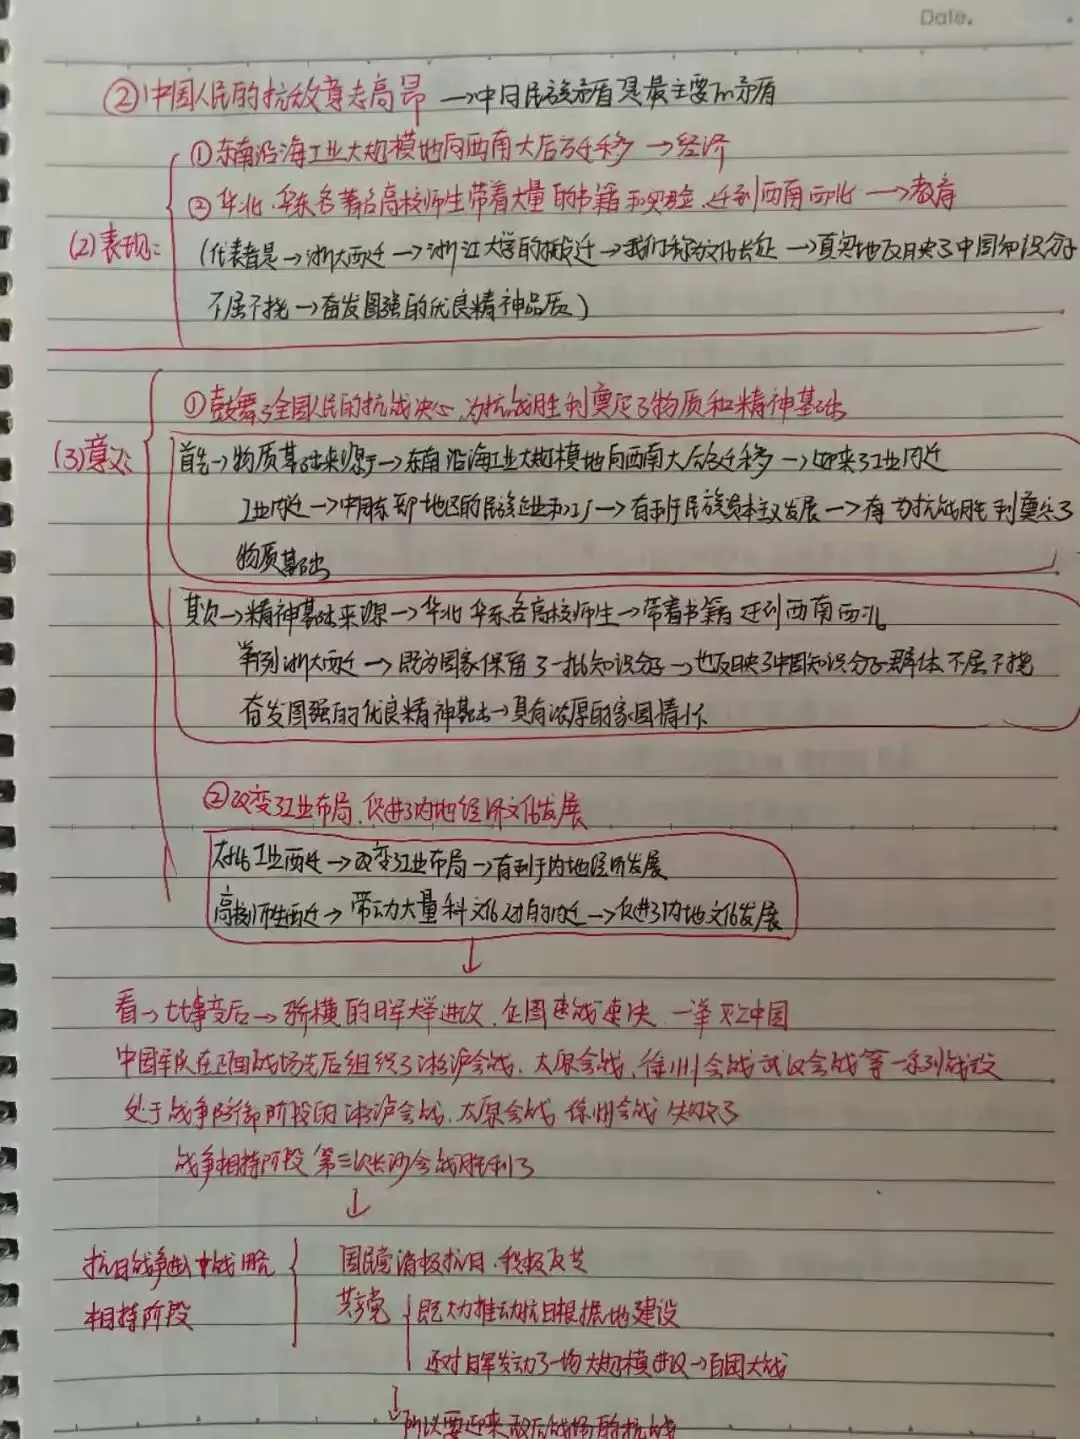 Date.
②中国人民的抗敌意志高昂 →中日民族矛盾是最主要的矛盾
①东南沿海工业大规模地向西南大后方迁移 →经济
②华北、华东各著名高校师生带着大量的书籍和实验,迁到西南西北 →教育
(2)表现:
(代表者是→浙大西迁→浙江大学的搬迁→我们称为文化长征→真实地反映了中国知识分子
不屈不挠→奋发图强的优良精神品质)
①鼓舞了全国人民的抗战决心,为抗战胜利奠定了物质和精神基础
(3)意义:
首先→物质基础来源于→东南沿海工业大规模地向西南大后方迁移→迎来了工业内迁
工业内迁→中国东部地区的民族企业和工厂→有利于民族资本主义发展→有为抗战胜利奠定了
物质基础
其次→精神基础来源→华北华东各高校师生→带着书籍迁到西南西北
等到浙大西迁→既为国家保留了一批知识分子→也反映了中国知识分子群体不屈不挠
奋发图强的优良精神基础→具有浓厚的家国情怀
②改变了工业布局,促进了内地经济文化发展
大批工业西迁→改变了工业布局→有利于内地经济发展
高校师生西迁→带动大量科文化的内迁→促进了内地文化发展
看→七七事变后→骄横的日军大举进攻,企图速战速决,一举灭亡中国
中国军队在正面战场先后组织了淞沪会战、太原会战、徐州会战武汉会战等一系列战役
处于战争防御阶段的淞沪会战、太原会战 徐州会战 失败了
战争相持阶段 第三次长沙会战胜利了
抗日战争进入战略
相持阶段
国民党消极抗日,积极反共
共产党
既大力推动抗日根据地建设
还对日军发动了一场大规模进攻→百团大战
所以要迎来敌后战场的抗战